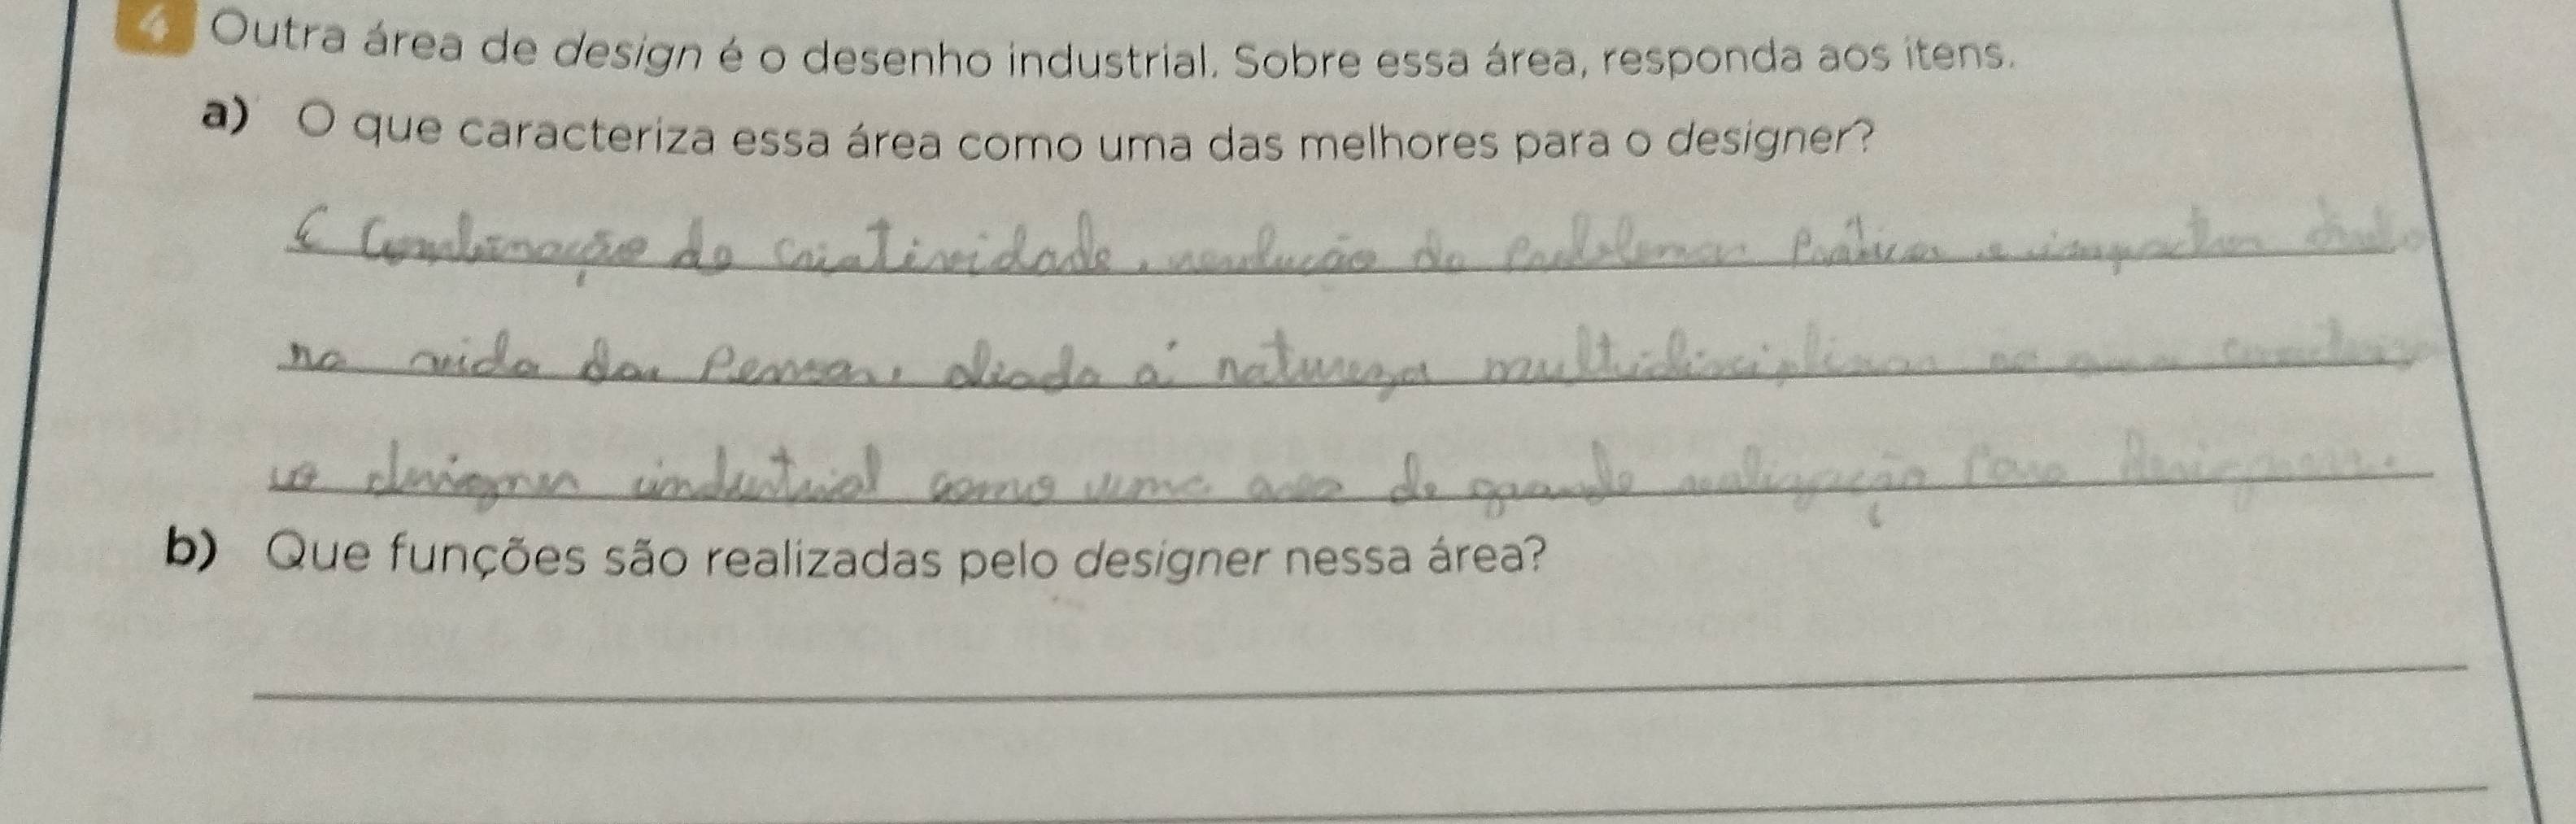 4 Outra área de design é o desenho industrial. Sobre essa área, responda aos itens.
a) O que caracteriza essa área como uma das melhores para o designer?
É Combinação de criatividade, resolução de Problemas Práticos e impacto direto
na vida das Pessoas, aliada á natureza multidisciplinar
designer industrial como uma area de grande realização Para Designers.
b) Que funções são realizadas pelo designer nessa área?